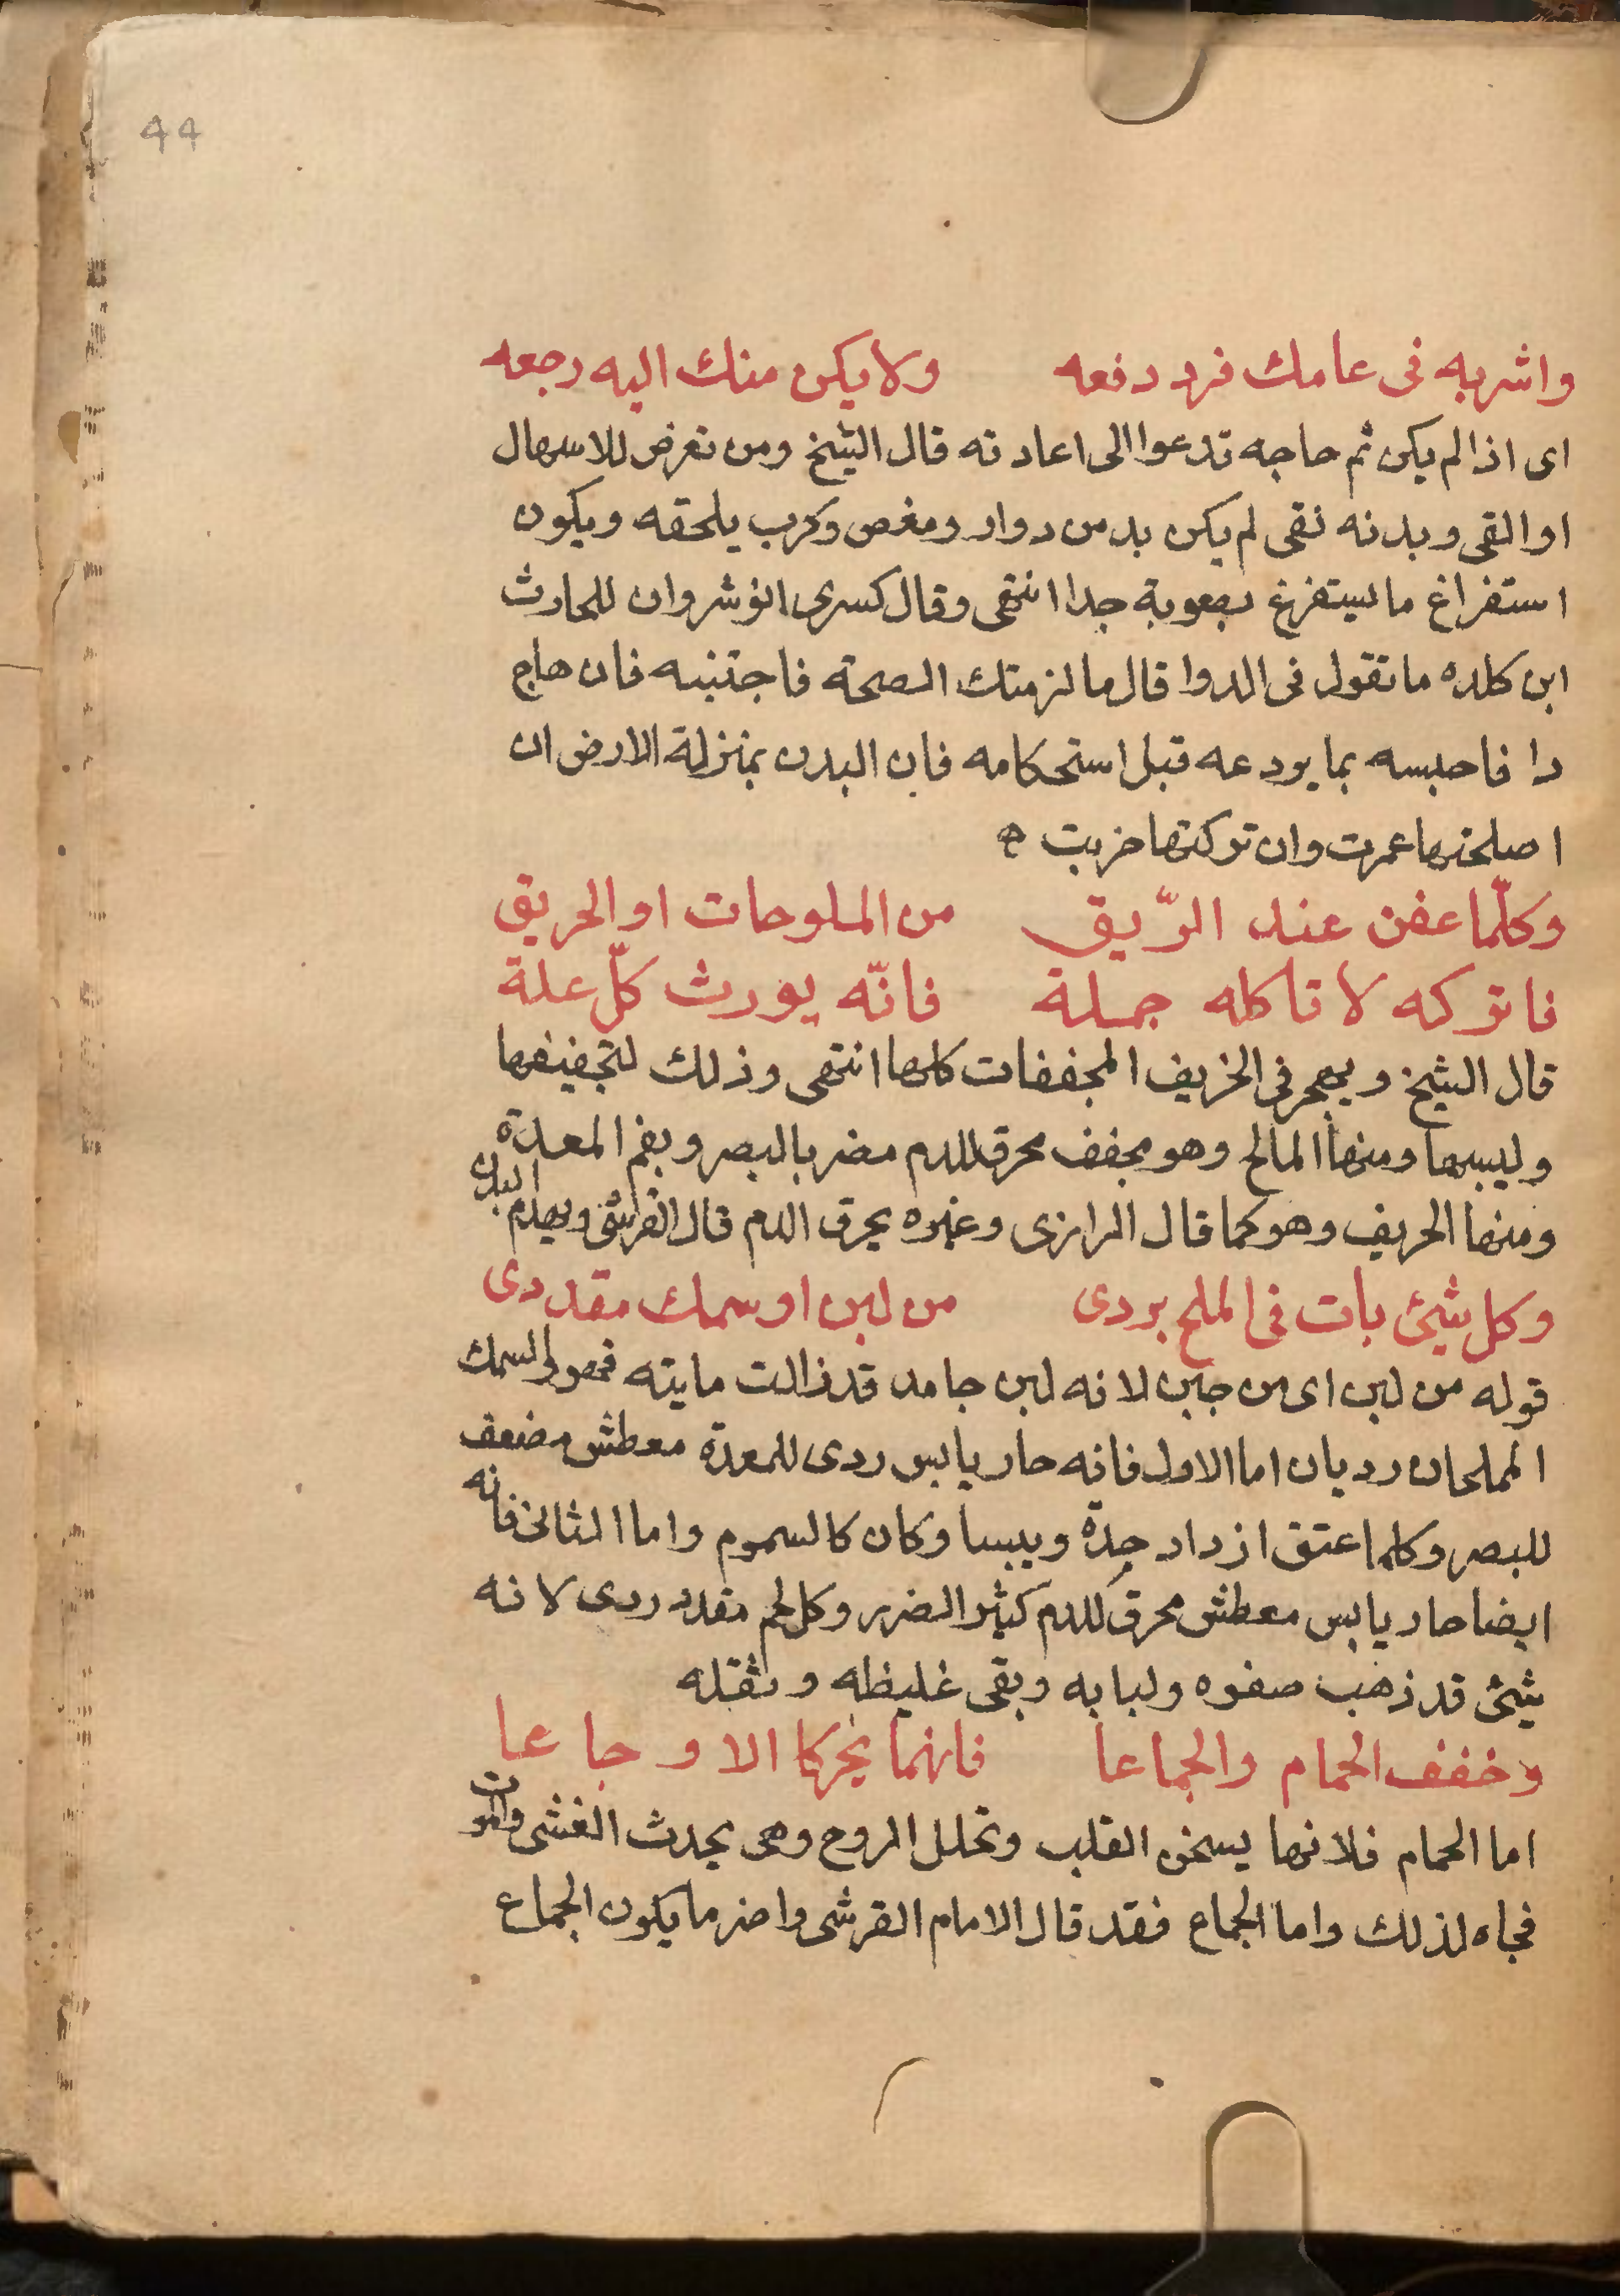 44
واشربه فى عامك فرد دفعه ولا يكن منك اليه رجعه
اى اذا لم يكن ثم حاجه تدعوا الى اعادته قال الشيخ ومن تعرض للاسهال
او القى وبدنه نقى لم يكن بد من دوار ومغص وكرب يلحقه ويكون
استفراغ ما يستفرغ بصعوبة جدا انتهى وقال كسرى انوشروان للحارث
ابن كلده ما تقول فى الدوا قال ما لزمتك الصحة فاجتنبه فان هاج
دا فاحبسه بما يودعه قبل استحكامه فان البدن بمنزلة الارض ان
اصلحتها عمرت وان تركتها خربت
وكلّما عفن عند الرّيق من الملوحات او الحريق
فاتركه لا تاكله جملة فانّه يورث كلّ علة
قال الشيخ ويهجر فى الخريف المجففات كلها انتهى وذلك لتجفيفها
وليبسها ومنها المالح وهو مجفف محرق للدم مضر بالبصر وبفم المعدة
ومنها الحريف وهو كما قال الرازى وغيره يحرق الدم قال القرشى ويهدم البدن
وكل شيئ بات فى الملح بردى من لبن او سمك مقددى
قوله من لبن اى من جبن لانه لبن جامد قد زالت مايته فهو والسمك
المملحان رديان اما الاول فانه حار يابس ردى للمعدة معطش مضعف
للبصر وكلما عتق ازداد حدة ويبسا وكان كالسموم واما الثانى فانه
ايضا حار يابس معطش محرق للدم كثير الضرر وكل لحم مقدد ردى لانه
شيئ قد ذهب صفوه ولبابه وبقى غليظه وثقله
وخفف الحمام والجماعا فانهما يحركا الاوجاعا
اما الحمام فلانها يسخن القلب وتحلل الروح وهى يحدث الغشى والموت
فجاه لذلك واما الجماع فقد قال الامام القرشى واضر ما يكون الجماع